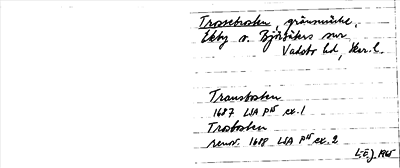 Trossebosten, gränsmärke,
Ekby s. Björsäters snr
Vadsbo hd, Skar. l.
Transbosten
1687 LSA P15 ex. 1
Trosbosten
renov. 1688 LSA P15 ex. 2
L-E J. 1965